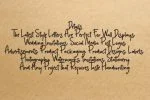 Details
The Latest Style Letters Are Perfect For Wall Displays
Wedding Invitations, Social Media Post Logos
Advertisements, Product Packaging, Product Designs, Labels
Photography, Watermark, Invitations, Stationery
And Any Project That Requires Taste Handwriting